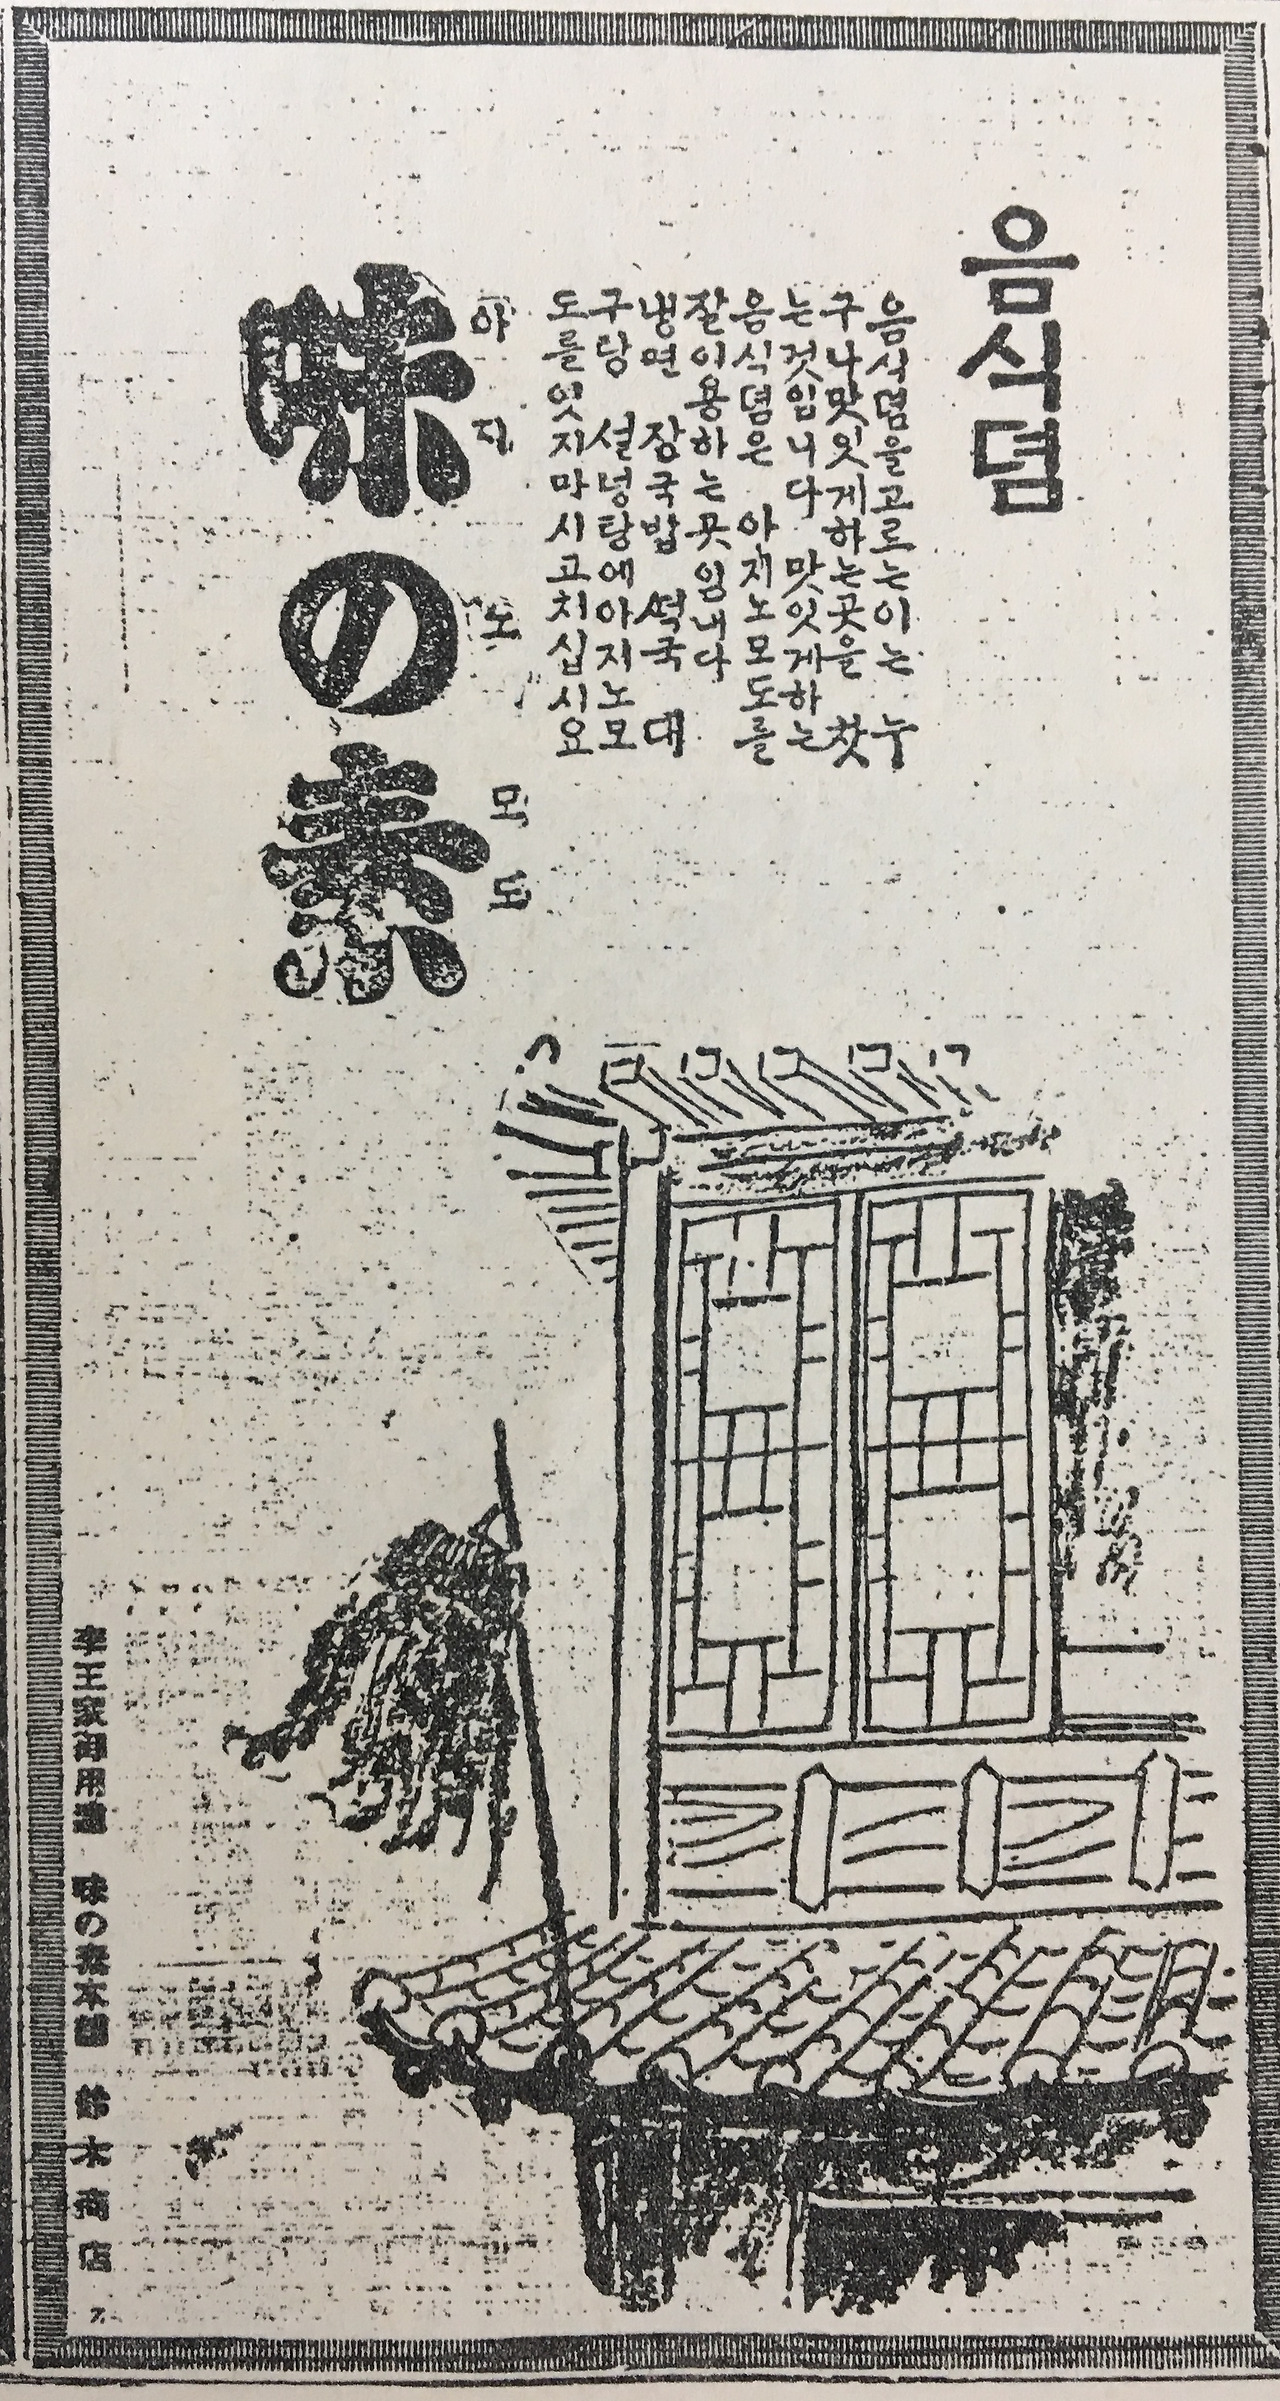 음식뎜
음식뎜을고르는이는 누
구나맛잇게하는곳을 찻
는것임니다 맛잇게하는
음식뎜은 아지노모도를
잘이용하는곳임내다
냉면 장국밥 떡국 대
구탕 설넝탕에아지노모
도를잇지마시고치십시요
아지노모도
味の素
李王家御用達 味の素本舗 鈴木商店